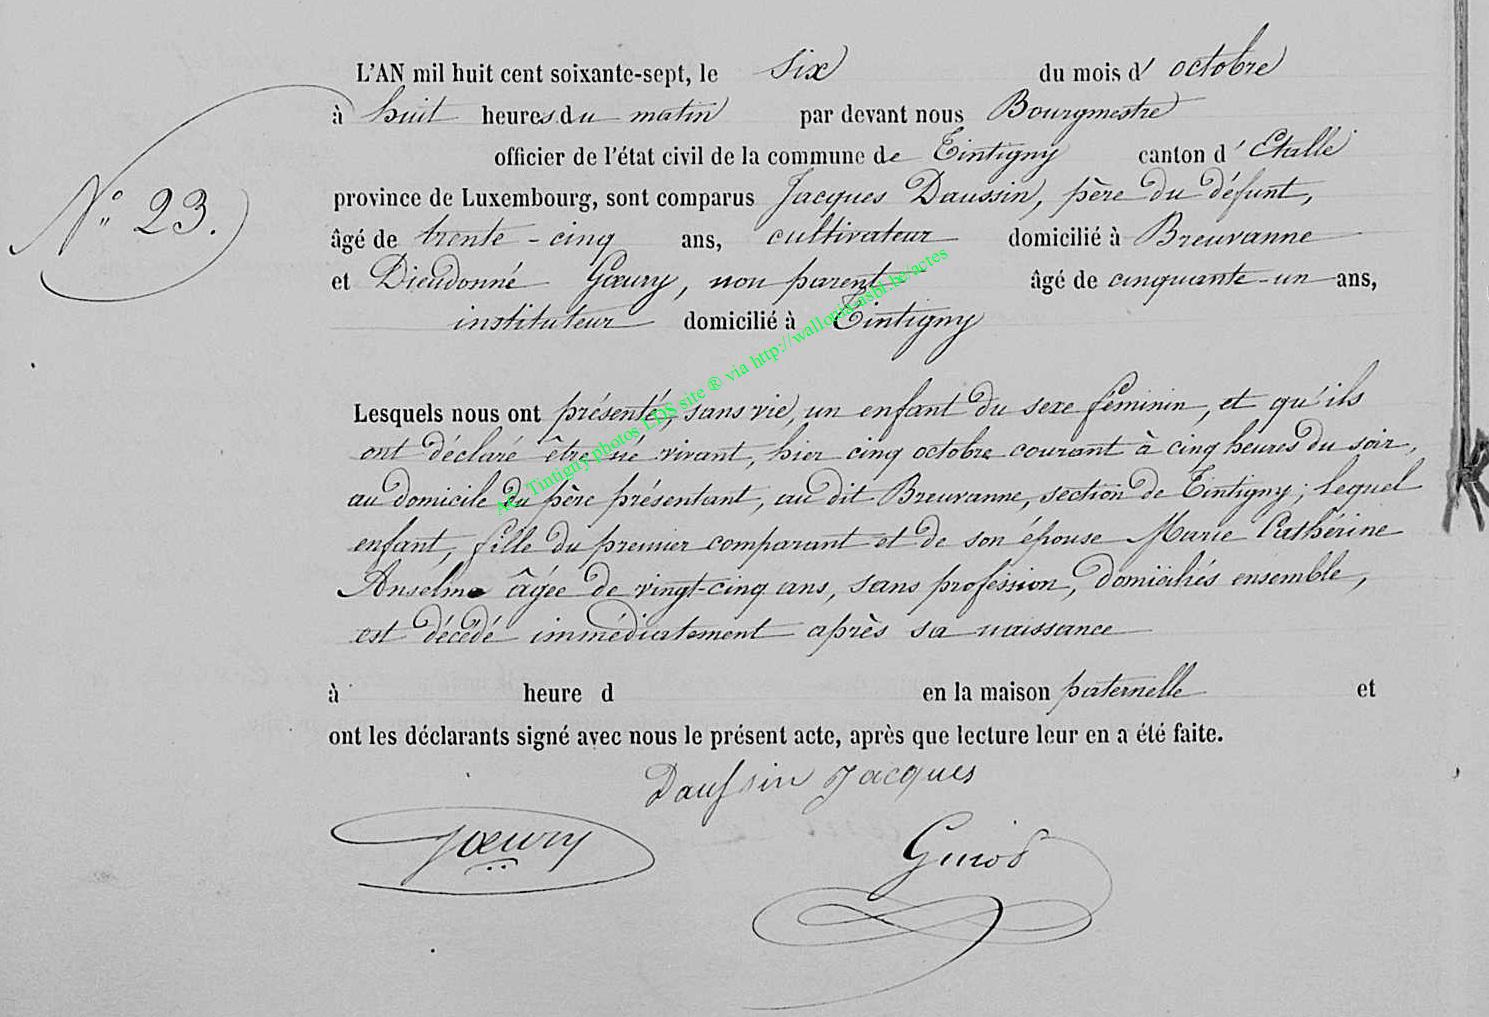 L'AN mil huit cent soixante-sept, le six du mois d' octobre
à huit heures du matin par devant nous Bourgmestre
officier de l'état civil de la commune de Tintigny canton d' Etalle
N° 23.
province de Luxembourg, sont comparus Jacques Daussin, père du défunt,
âgé de trente-cinq ans, cultivateur domicilié à Breuvanne
et Dieudonné Gœury, non parent âgé de cinquante-un ans,
instituteur domicilié à Tintigny
AC Tintigny photos LDS site ® via http://wallonia-asbl.be/actes
Lesquels nous ont présenté, sans vie, un enfant du sexe féminin, et qu'ils
ont déclaré être né vivant, hier cinq octobre courant à cinq heures du soir,
au domicile du père présentant, au dit Breuvanne, section de Tintigny; lequel
enfant, fille du premier comparant et de son épouse Marie Cathérine
Anselme âgée de vingt-cinq ans, sans profession, domiciliés ensemble,
est décédé immédiatement après sa naissance
à heure d en la maison paternelle et
ont les déclarants signé avec nous le présent acte, après que lecture leur en a été faite.
Daussin Jacques
Gœury Guiot